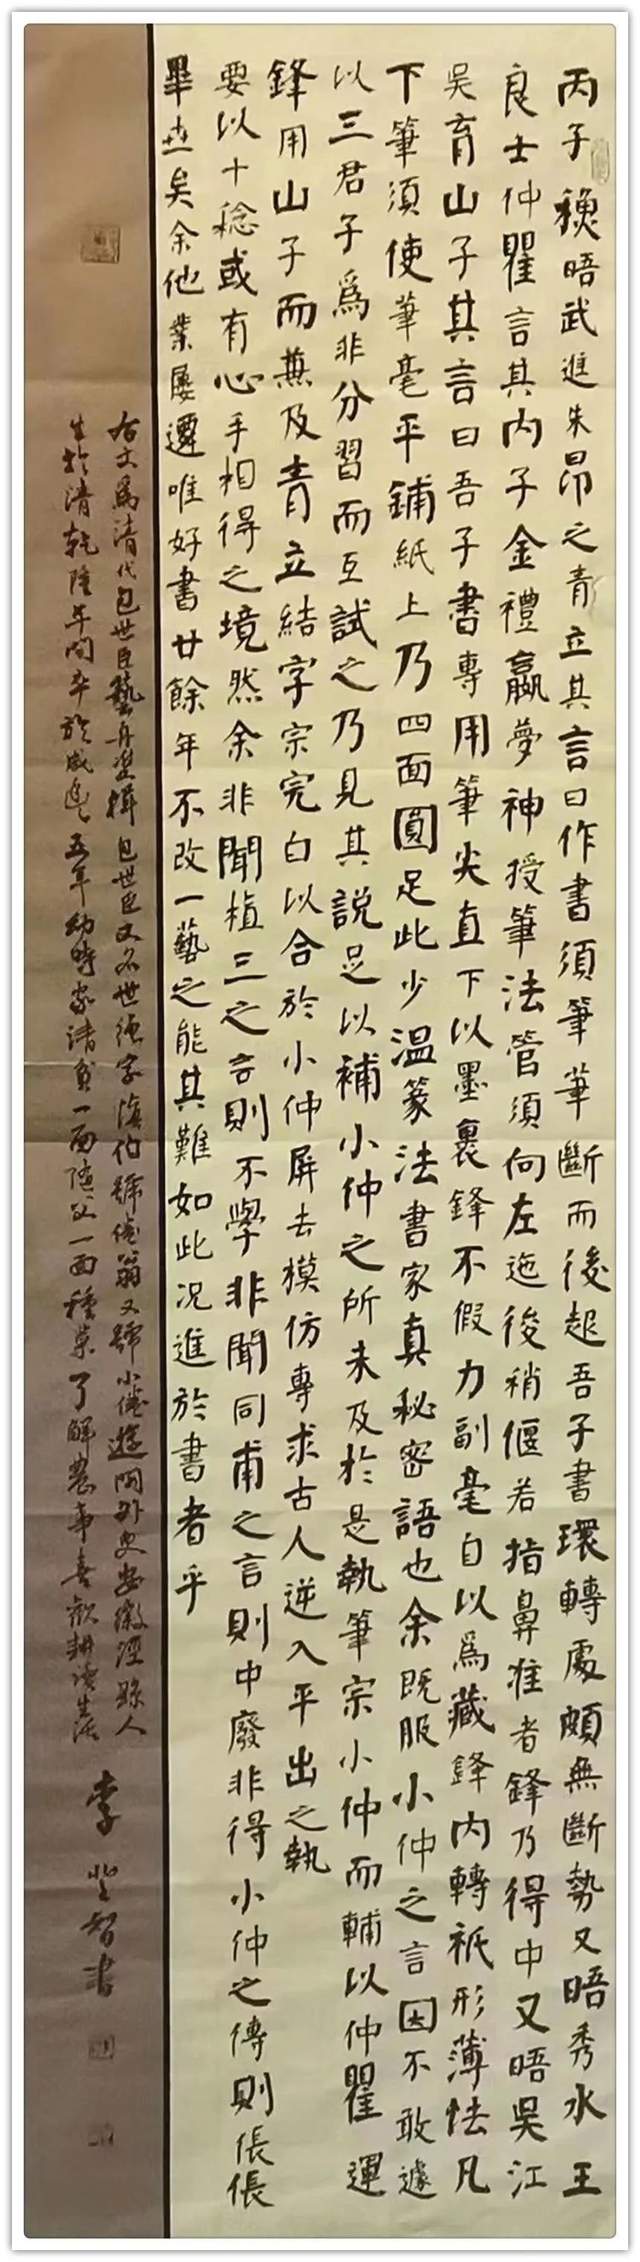 丙子穐晤武進朱昂之青立其言曰作書須筆筆斷而後起吾子書環轉處頗無斷勢又晤秀水王
良士仲瞿言其内子金禮嬴夢神授筆法管須向左迤後稍偃若指鼻准者鋒乃得中又晤吳江
吳育山子其言曰吾子書專用筆尖直下以墨裹鋒不假力副毫自以爲藏鋒内轉祇形薄怯凡
下筆須使筆毫平鋪紙上乃四面圓足此少温篆法書家真秘密語也余既服小仲之言因不敢遽
以三君子爲非分習而互試之乃見其說足以補小仲之所未及於是執筆宗小仲而輔以仲瞿運
鋒用山子而兼及青立結字宗完白以合於小仲屏去模仿專求古人逆入平出之執
要以十稔或有心手相得之境然余非聞植三之言則不學非聞同甫之言則中廢非得小仲之傳則倀倀
畢世矣余他業屢遷唯好書廿餘年不改一藝之能其難如此况進於書者乎
右文爲清代包世臣藝舟雙楫包世臣又名世綎字慎伯號倦翁又號小倦遊閣外史安徽涇縣人
生於清乾隆年間卒於咸豐五年幼時家清貧一面隨父一面種菜了解農事喜歡耕讀生活
李登智書